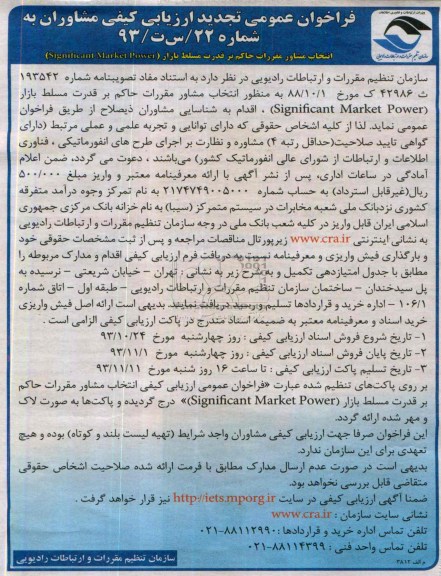 فراخوان عمومی تجدید ارزیابی کیفی مشاوران به
شماره ۲۲/س‌ت/۹۳
انتخاب مشاور مقررات حاکم بر قدرت مسلط بازار (Significant Market Power)
سازمان تنظیم مقررات و ارتباطات رادیویی در نظر دارد به استناد مفاد تصویبنامه شماره ۱۹۳۵۴۲
ث ۴۲۹۸۶ ک مورخ ۸۸/۱۰/۱ به منظور انتخاب مشاور مقررات حاکم بر قدرت مسلط بازار
(Significant Market Power) ، اقدام به شناسایی مشاوران ذیصلاح از طریق فراخوان
عمومی نماید. لذا از کلیه اشخاص حقوقی که دارای توانایی و تجربه علمی و عملی مرتبط (دارای
گواهی تایید صلاحیت(حداقل رتبه ۴) مشاوره و نظارت بر اجرای طرح های انفورماتیکی ، فناوری
اطلاعات و ارتباطات از شورای عالی انفورماتیک کشور) می‌باشند ، دعوت می گردد، ضمن اعلام
آمادگی در ساعات اداری، پس از نشر آگهی با ارائه معرفینامه معتبر و واریز مبلغ ۵۰۰/۰۰۰
ریال(غیرقابل استرداد) به حساب شماره ۲۱۷۴۷۴۹۰۰۵۰۰۰ به نام تمرکز وجوه درآمد متفرقه
کشوری نزدبانک ملی شعبه مخابرات در سیستم متمرکز (سیبا) به نام خزانه بانک مرکزی جمهوری
اسلامی ایران قابل واریز در کلیه شعب بانک ملی در وجه سازمان تنظیم مقررات و ارتباطات رادیویی
به نشانی اینترنتی www.cra.ir زیرپورتال مناقصات مراجعه و پس از ثبت مشخصات حقوقی خود
و بارگذاری فیش واریزی و معرفینامه نسبت به دریافت فرم ارزیابی کیفی اقدام و مدارک مربوطه را
مطابق با جدول امتیازدهی تکمیل و به شرح زیر به نشانی : تهران – خیابان شریعتی – نرسیده به
پل سیدخندان – ساختمان سازمان تنظیم مقررات و ارتباطات رادیویی – طبقه اول – اتاق شماره
۱۰۶/۱ – اداره خرید و قراردادها تسلیم و رسید دریافت نمایند. بدیهی است ارائه اصل فیش واریزی
خرید اسناد و معرفینامه معتبر به ضمیمه اسناد مندرج در پاکت ارزیابی کیفی الزامی است .
۱- تاریخ شروع فروش اسناد ارزیابی کیفی : روز چهارشنبه مورخ ۹۳/۱۰/۲۴
۲- تاریخ پایان فروش اسناد ارزیابی کیفی : روز چهارشنبه مورخ ۹۳/۱۱/۱
۳- تاریخ تسلیم پاکت ارزیابی کیفی : تا ساعت ۱۶ روز شنبه مورخ ۹۳/۱۱/۱۱
بر روی پاکت‌های تنظیم شده عبارت «فراخوان عمومی ارزیابی کیفی انتخاب مشاور مقررات حاکم
بر قدرت مسلط بازار (Significant Market Power)» درج گردیده و پاکت‌ها به صورت لاک
و مهر شده ارائه گردد.
این فراخوان صرفا جهت ارزیابی کیفی مشاوران واجد شرایط (تهیه لیست بلند و کوتاه) بوده و هیچ
تعهدی برای این سازمان ندارد.
بدیهی است در صورت عدم ارسال مدارک مطابق با فرمت ارائه شده صلاحیت اشخاص حقوقی
متقاضی قابل بررسی نخواهد بود.
ضمنا آگهی ارزیابی کیفی در سایت http://iets.mporg.ir نیز قرار خواهد گرفت .
نشانی سایت سازمان : www.cra.ir
تلفن تماس اداره خرید و قراردادها : ۸۸۱۱۲۹۹۰-۰۲۱
تلفن تماس واحد فنی : ۸۸۱۱۴۳۹۹-۰۲۱
سازمان تنظیم مقررات و ارتباطات رادیویی
م الف ۳۸۱۲